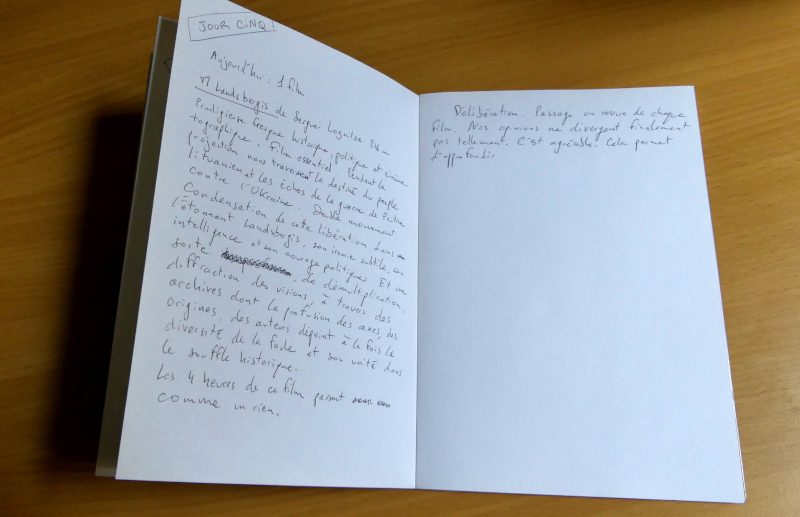 JOUR CINQ
Aujourd'hui : 1 film.
Mr Landsbergis de Sergueï Loznitsa 246mn
Prodigieuse fresque historique, politique et cinéma-
tographique. Film essentiel. Pendant la
projection nous traversent la destinée du peuple
lituanien et les échos de la guerre de Poutine
contre l'Ukraine. Double mouvement
Condensation de cette libération dans
l'étonnant Landsbergis, son ironie subtile, son
intelligence et son courage politiques. Et une
sorte de démultiplication,
diffraction des visions, à travers des
archives dont la profusion des axes, des
origines, des auteurs dépeint à la fois la
diversité de la foule et son unité dans
le souffle historique.
Les 4 heures de ce film passent
comme un rien.
Délibération. Passage en revue de chaque
film. Nos opinions ne divergent finalement
pas tellement. C'est agréable. Cela permet
d'approfondir